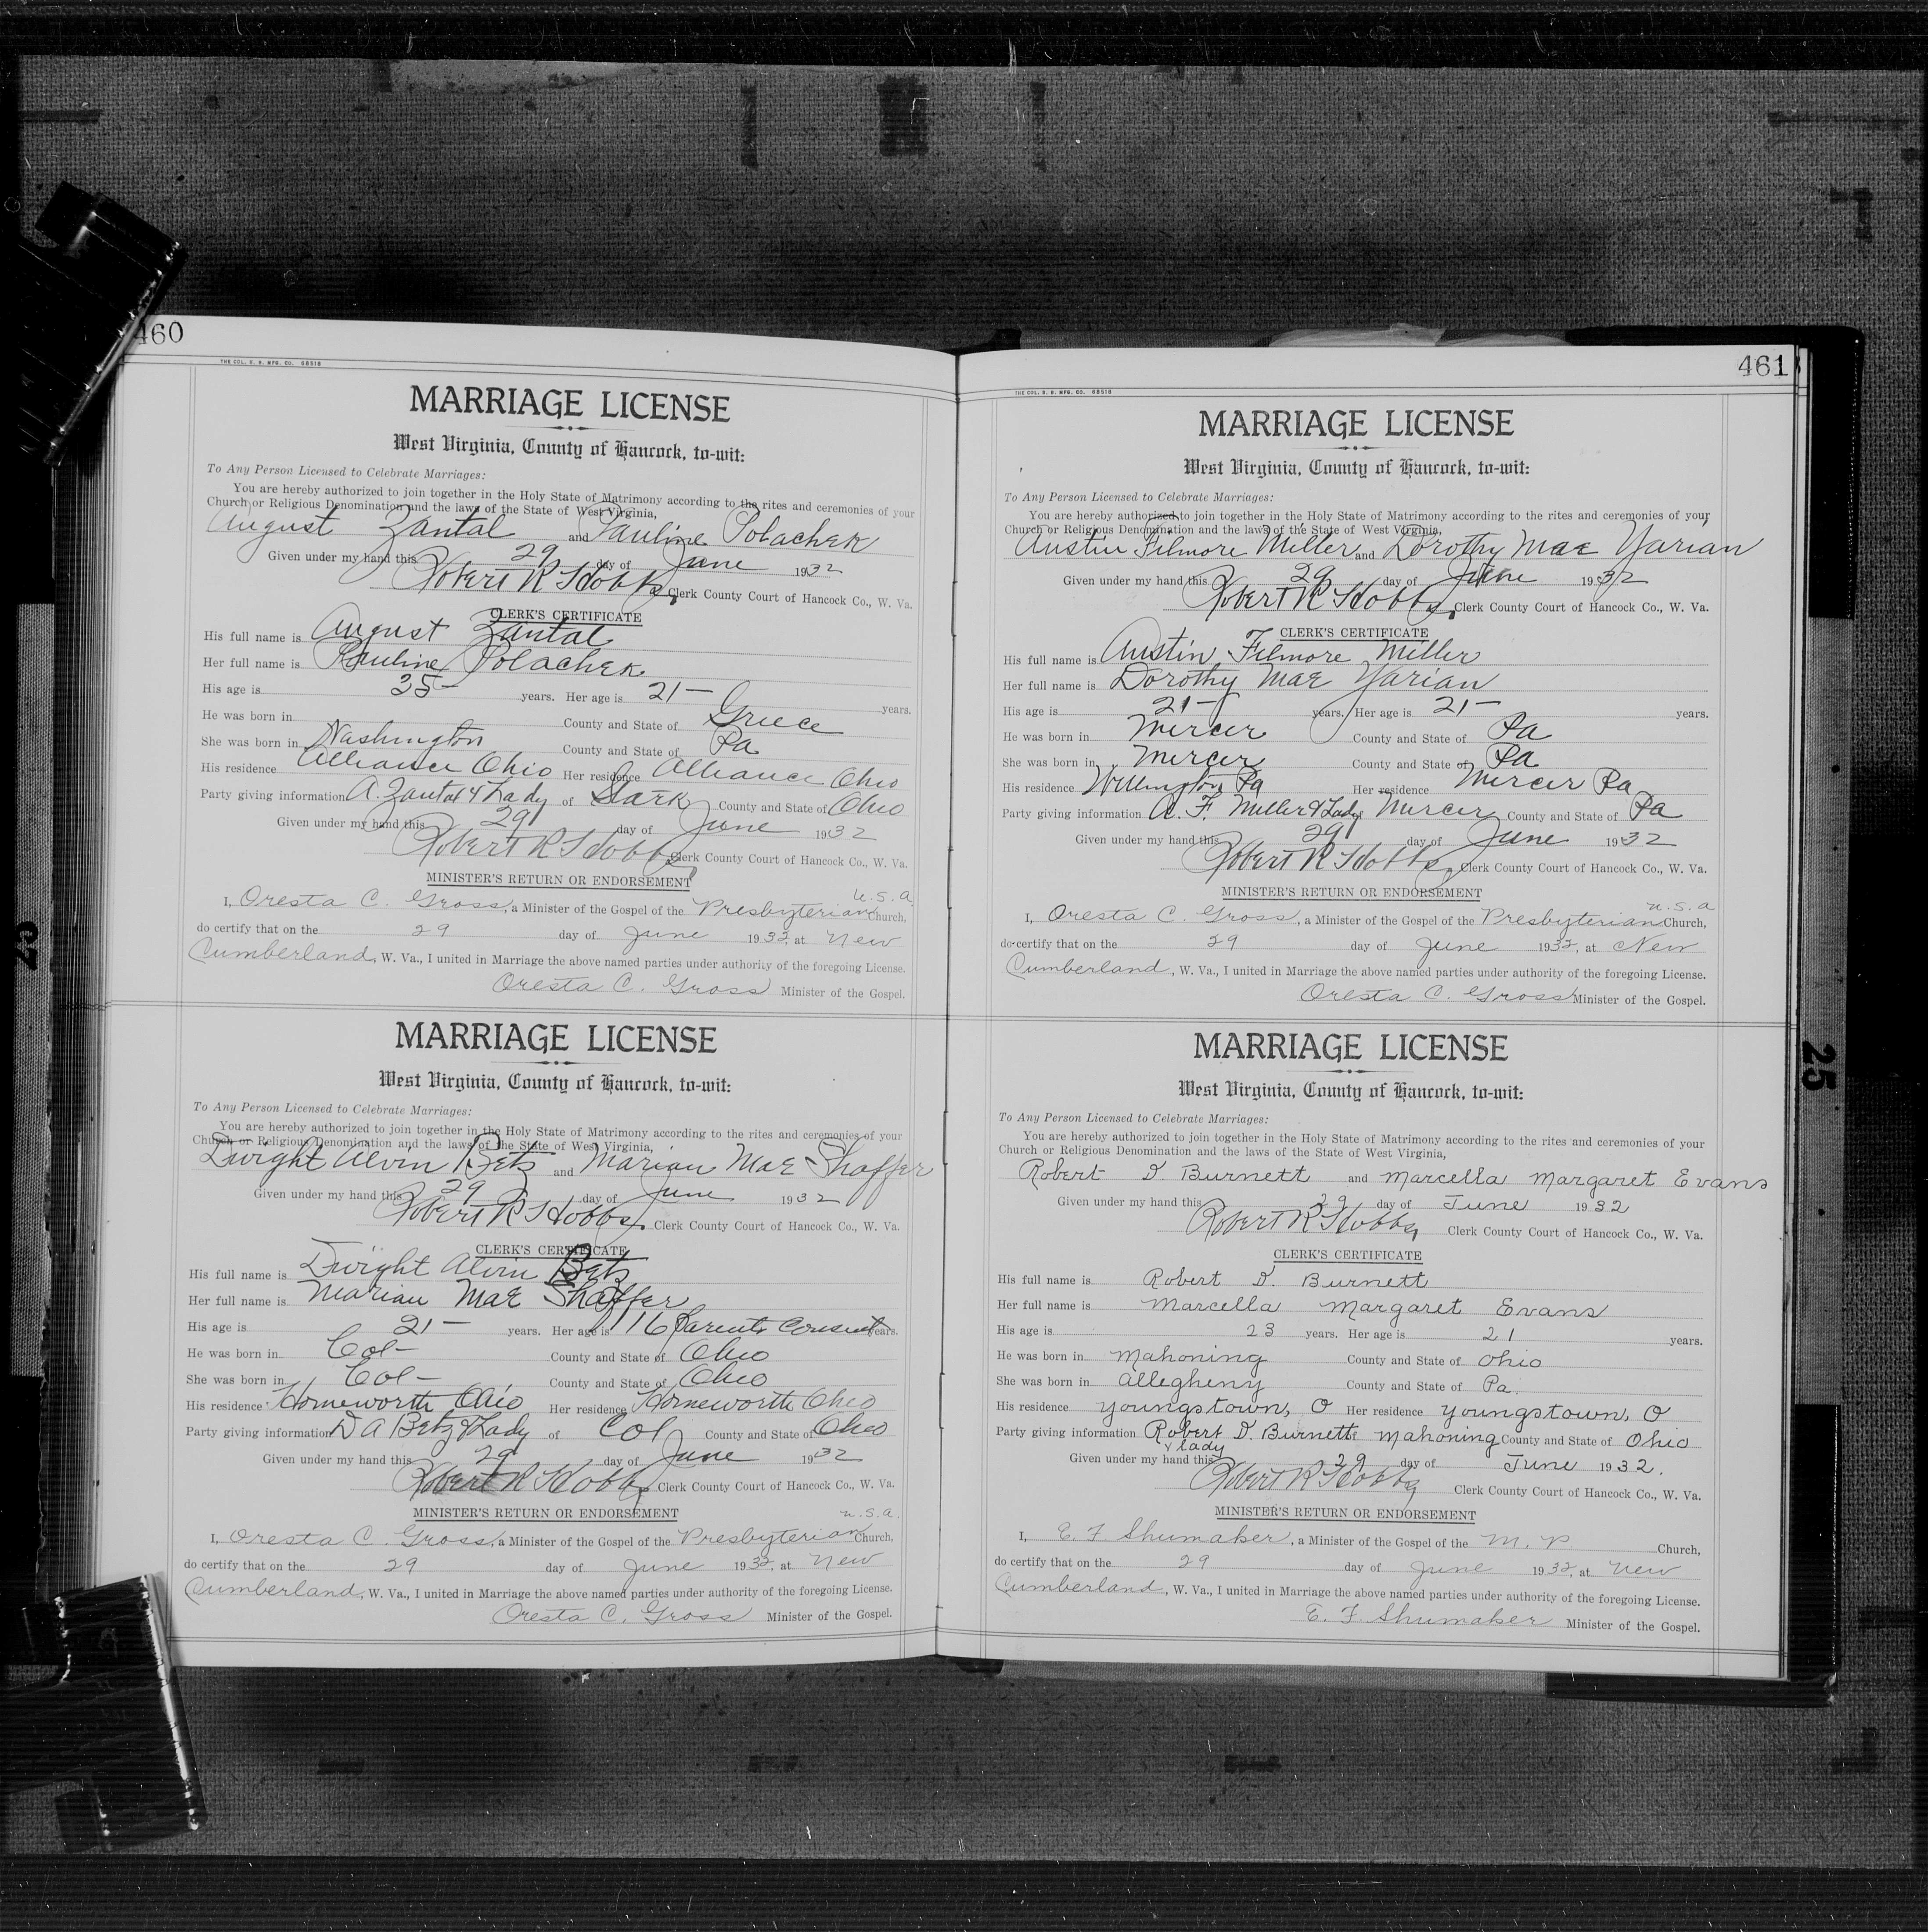 460
THE COL. B. B. MFG. CO. 68518
MARRIAGE LICENSE
West Virginia, County of Hancock, to-wit:
To Any Person Licensed to Celebrate Marriages:
You are hereby authorized to join together in the Holy State of Matrimony according to the rites and ceremonies of your
Church or Religious Denomination and the laws of the State of West Virginia,
August Zantal and Pauline Polachek
Given under my hand this 29 day of June 1932
Robert R Hobbs, Clerk County Court of Hancock Co., W. Va.
CLERK'S CERTIFICATE
His full name is August Zantal
Her full name is Pauline Polachek
His age is 35 years. Her age is 21 years.
He was born in County and State of Greece
She was born in Washington County and State of Pa
His residence Alliance Ohio Her residence Alliance Ohio
Party giving information A. Zantal & Lady of Stark County and State of Ohio
Given under my hand this 29 day of June 1932
Robert R Hobbs, Clerk County Court of Hancock Co., W. Va.
MINISTER'S RETURN OR ENDORSEMENT
I, Oresta C. Gross, a Minister of the Gospel of the Presbyterian U.S.A. Church,
do certify that on the 29 day of June 1932, at New
Cumberland, W. Va., I united in Marriage the above named parties under authority of the foregoing License.
Oresta C. Gross Minister of the Gospel.
MARRIAGE LICENSE
West Virginia, County of Hancock, to-wit:
To Any Person Licensed to Celebrate Marriages:
You are hereby authorized to join together in the Holy State of Matrimony according to the rites and ceremonies of your
Church or Religious Denomination and the laws of the State of West Virginia,
Dwight Alvin Betz and Marian Mae Shaffer
Given under my hand this 29 day of June 1932
Robert R Hobbs, Clerk County Court of Hancock Co., W. Va.
CLERK'S CERTIFICATE
His full name is Dwight Alvin Betz
Her full name is Marian Mae Shaffer
His age is 21 years. Her age is 16 Parents Consent years.
He was born in Col- County and State of Ohio
She was born in Col- County and State of Ohio
His residence Homeworth Ohio Her residence Homeworth Ohio
Party giving information D A Betz & Lady of Col County and State of Ohio
Given under my hand this 29 day of June 1932
Robert R Hobbs, Clerk County Court of Hancock Co., W. Va.
MINISTER'S RETURN OR ENDORSEMENT
I, Oresta C. Gross, a Minister of the Gospel of the Presbyterian U.S.A. Church,
do certify that on the 29 day of June 1932, at New
Cumberland, W. Va., I united in Marriage the above named parties under authority of the foregoing License.
Oresta C. Gross Minister of the Gospel.
461
THE COL. B. B. MFG. CO. 68518
MARRIAGE LICENSE
West Virginia, County of Hancock, to-wit:
To Any Person Licensed to Celebrate Marriages:
You are hereby authorized to join together in the Holy State of Matrimony according to the rites and ceremonies of your
Church or Religious Denomination and the laws of the State of West Virginia,
Austin Filmore Miller and Dorothy Mae Yarian
Given under my hand this 29 day of June 1932
Robert R Hobbs, Clerk County Court of Hancock Co., W. Va.
CLERK'S CERTIFICATE
His full name is Austin Filmore Miller
Her full name is Dorothy Mae Yarian
His age is 21 years. Her age is 21 years.
He was born in Mercer County and State of Pa
She was born in Mercer County and State of Pa
His residence Pa Her residence Mercer Pa
Party giving information A. F. Miller & Lady Mercer County and State of Pa
Given under my hand this 29 day of June 1932
Robert R Hobbs, Clerk County Court of Hancock Co., W. Va.
MINISTER'S RETURN OR ENDORSEMENT
I, Oresta C. Gross, a Minister of the Gospel of the Presbyterian U.S.A. Church,
do certify that on the 29 day of June 1932, at New
Cumberland, W. Va., I united in Marriage the above named parties under authority of the foregoing License.
Oresta C. Gross Minister of the Gospel.
MARRIAGE LICENSE
West Virginia, County of Hancock, to-wit:
To Any Person Licensed to Celebrate Marriages:
You are hereby authorized to join together in the Holy State of Matrimony according to the rites and ceremonies of your
Church or Religious Denomination and the laws of the State of West Virginia,
Robert D. Burnett and Marcella Margaret Evans
Given under my hand this 29 day of June 1932
Robert R Hobbs, Clerk County Court of Hancock Co., W. Va.
CLERK'S CERTIFICATE
His full name is Robert D. Burnett
Her full name is Marcella Margaret Evans
His age is 23 years. Her age is 21 years.
He was born in Mahoning County and State of Ohio
She was born in Allegheny County and State of Pa.
His residence Youngstown, O Her residence Youngstown, O
Party giving information Robert D. Burnett & lady Mahoning County and State of Ohio
Given under my hand this 29 day of June 1932.
Robert R Hobbs, Clerk County Court of Hancock Co., W. Va.
MINISTER'S RETURN OR ENDORSEMENT
I, E. F. Shumaker, a Minister of the Gospel of the M. P Church,
do certify that on the 29 day of June 1932, at New
Cumberland, W. Va., I united in Marriage the above named parties under authority of the foregoing License.
E. F. Shumaker Minister of the Gospel.
25